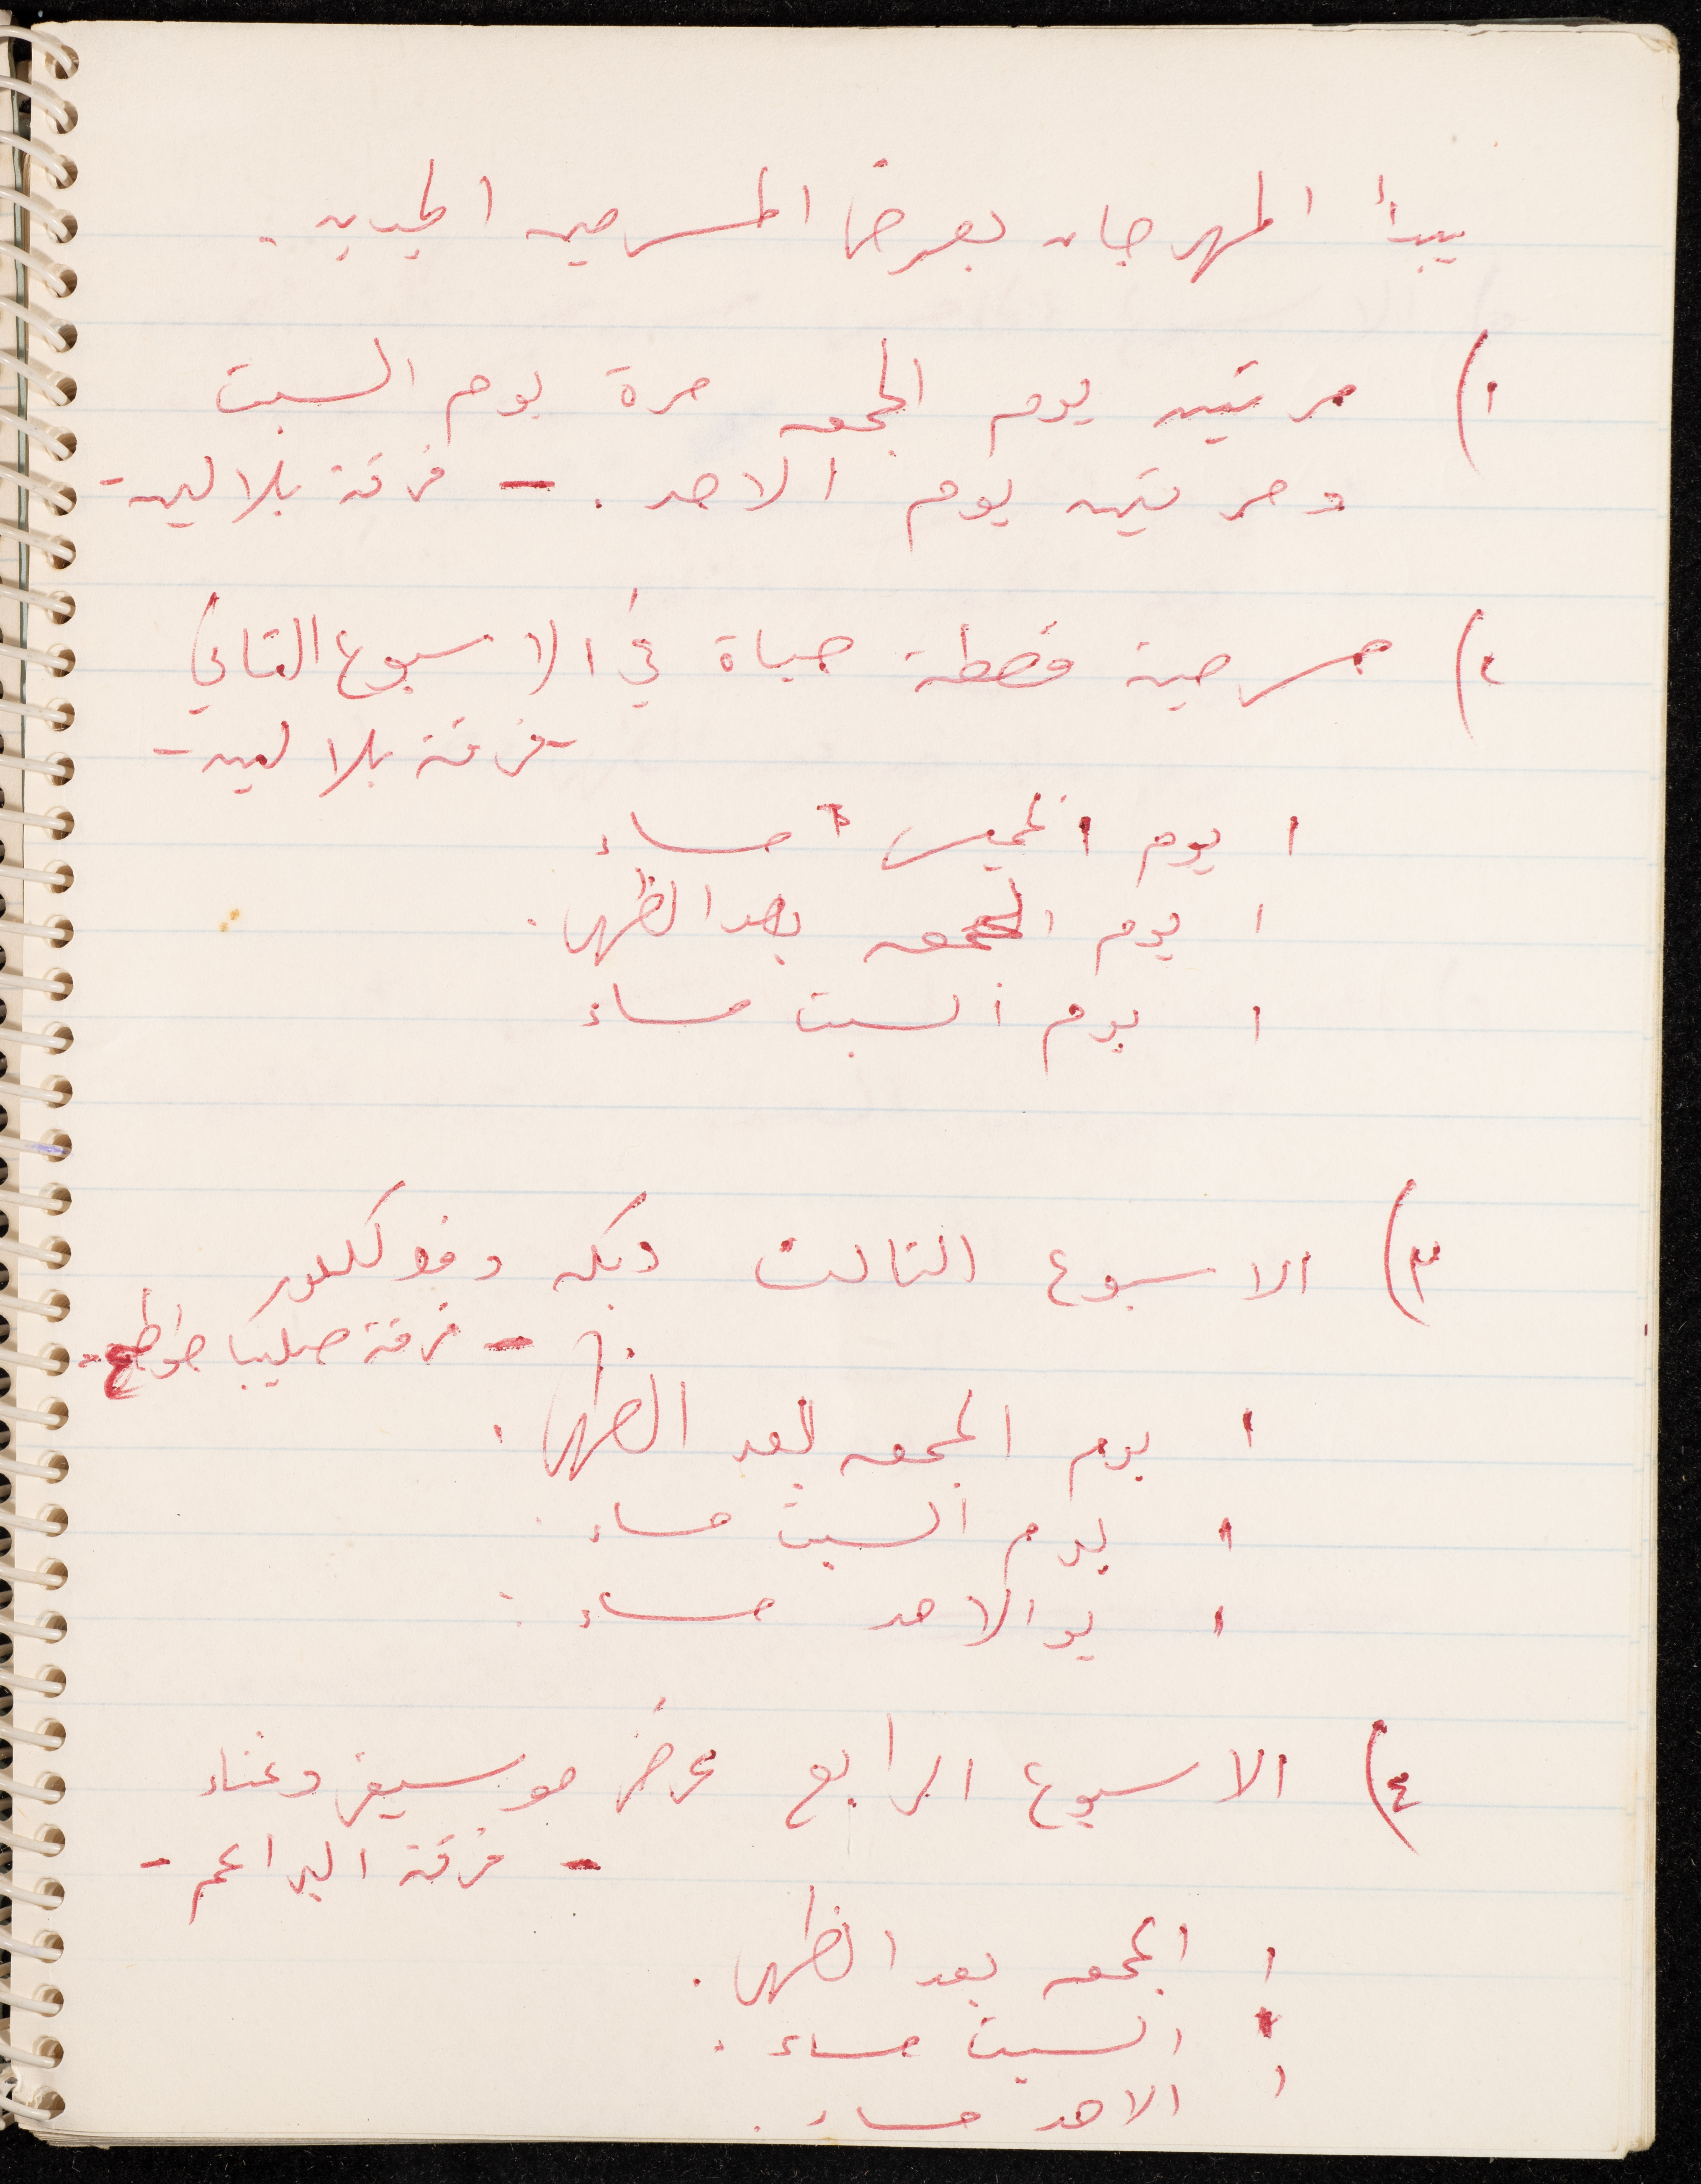 يبدأ المهرجان بعرض المسرحيه الجديده.
١) مرتين يوم الجمعه مرة يوم السبت
ومرتين يوم الاحد. - فرقة بلالين-
٢) مسرحية قطعة حياة في الاسبوع الثاني
-فرقة بلالين-
١ يوم الخميس مساء
١ يوم الجمعه بعد الظهر.
١ يوم السبت مساء
٣) الاسبوع الثالث دبكه وفولكلور
- فرقة صليبا طوطح-
١ يوم الجمعه بعد الظهر.
١ يوم السبت مساء.
١ يو الاحد مساء.
٤) الاسبوع الرابع عرض موسيقى وغناء
- فرقة البراعم -
١ الجمعه بعد الظهر.
١ السبت مساء.
١ الاحد مساء.